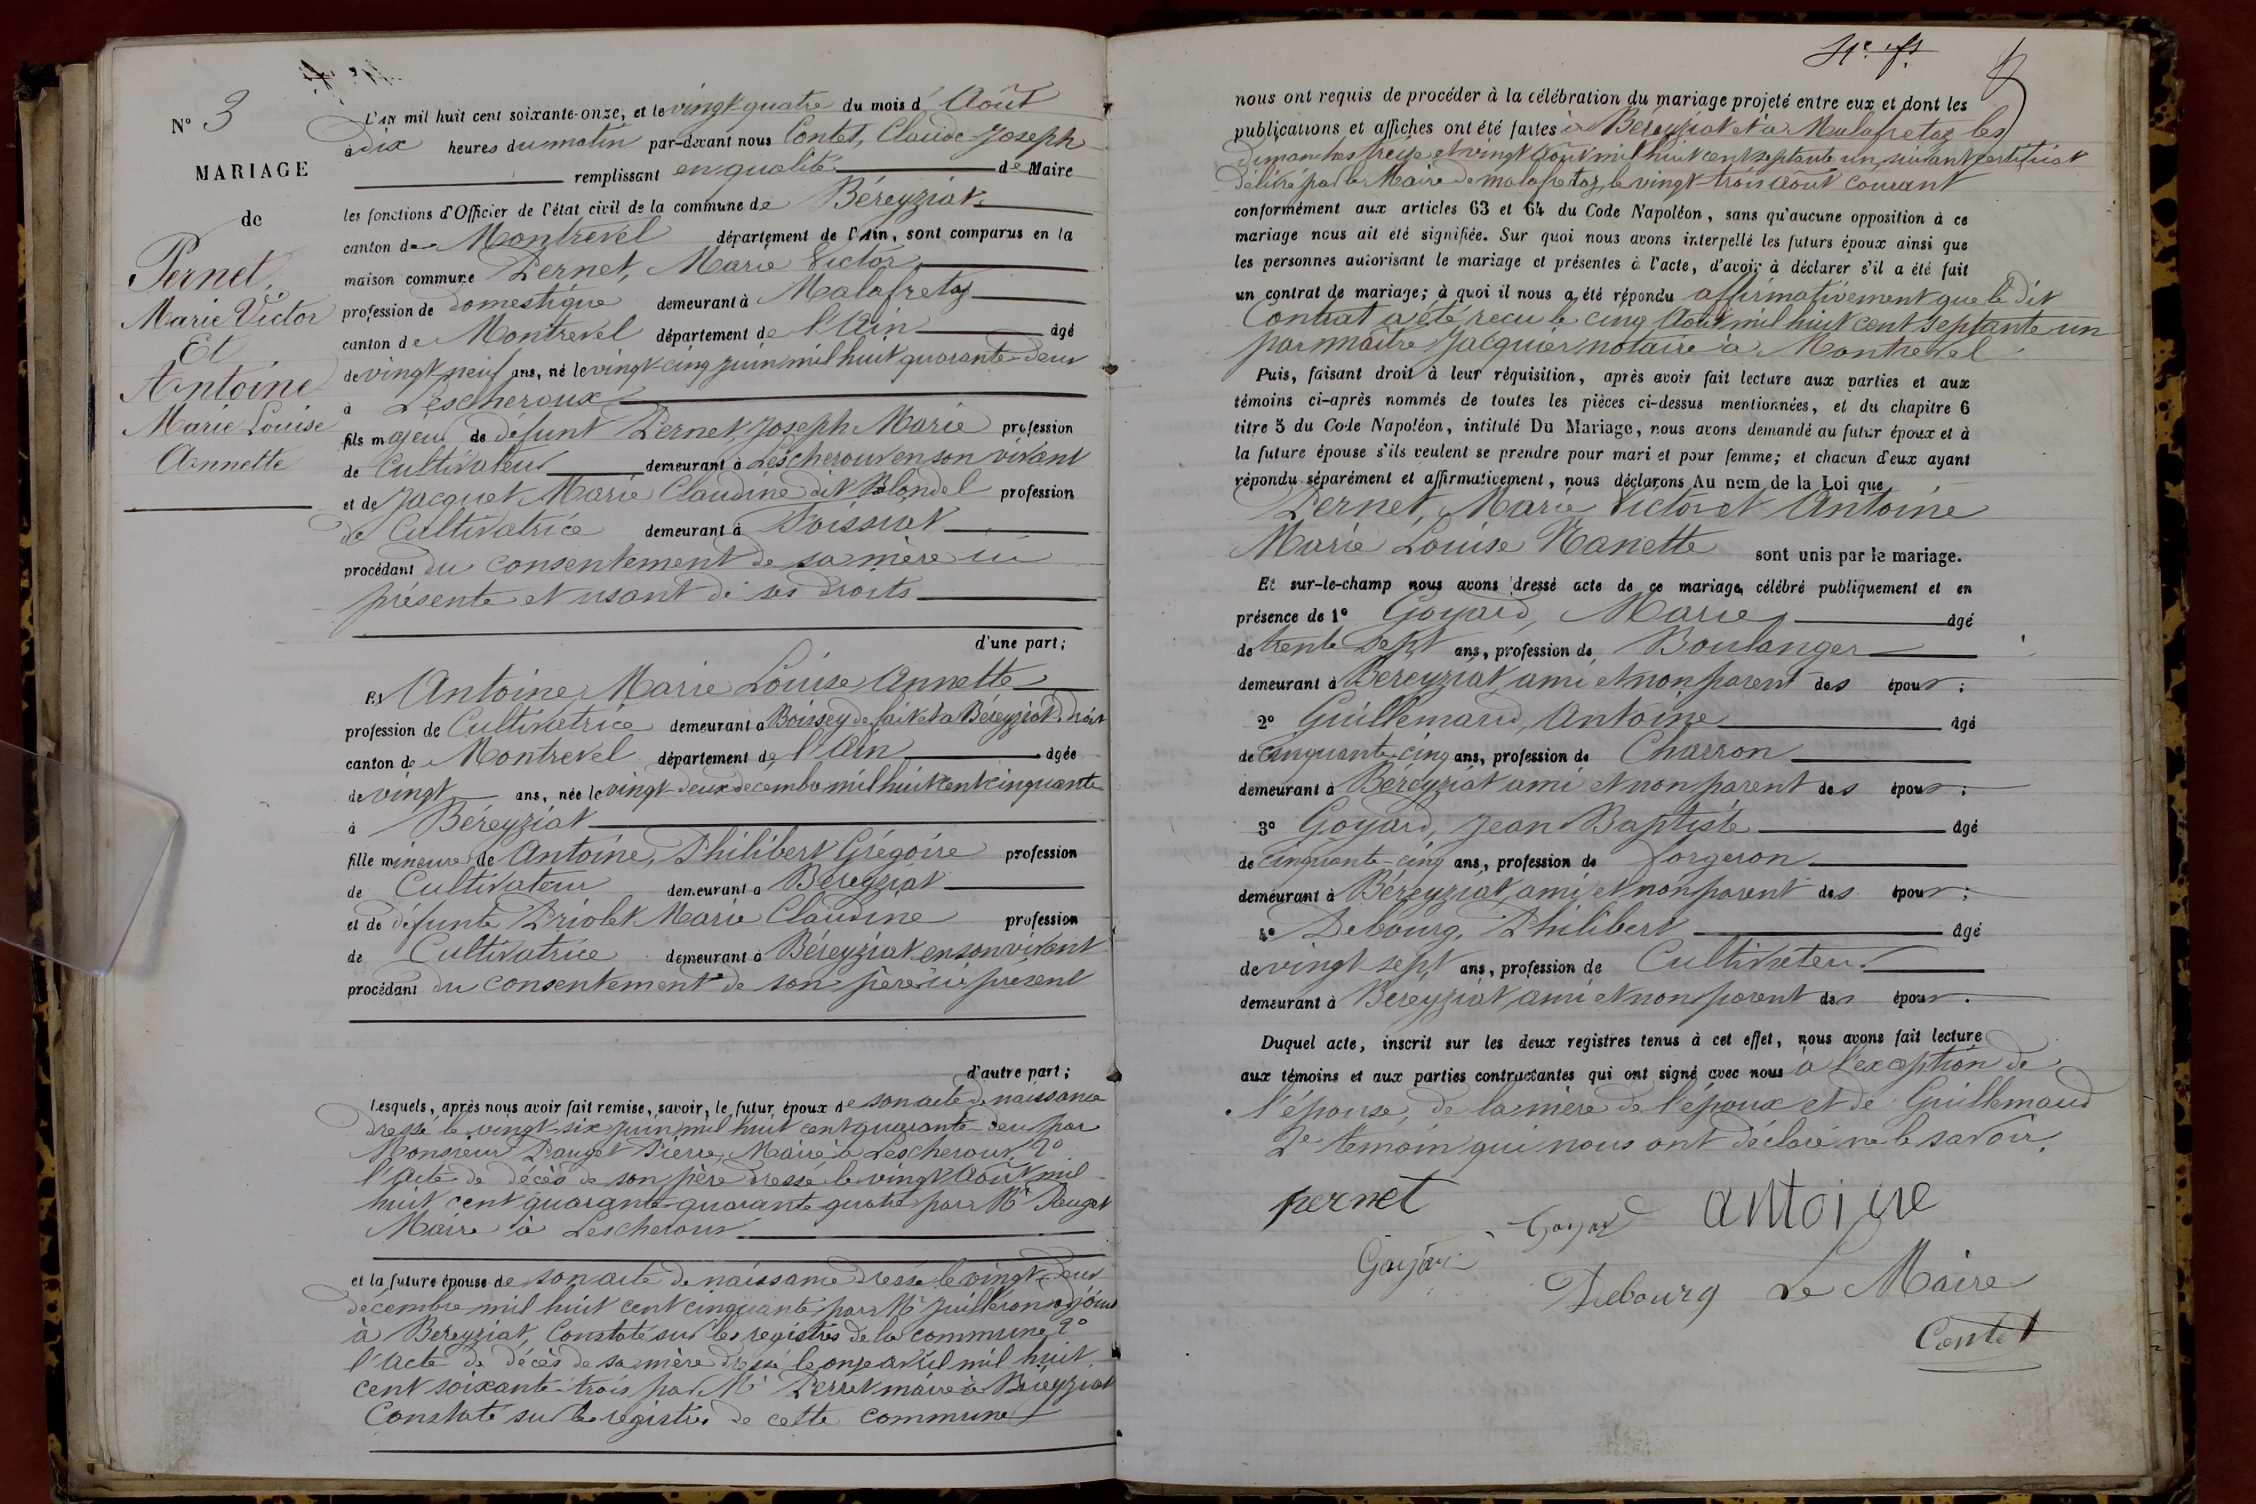 N° 3
MARIAGE
de
Pernet,
Marie Victor
Et
Antoine
Marie Louise
Annette
L'AN mil huit cent soixante-onze, et le vingt-quatre du mois d'Août
à dix heures du matin par-devant nous Contet, Claude Joseph
remplissant en qualité de Maire
les fonctions d'Officier de l'état civil de la commune de Béreyziat
canton de Montrevel département de l'Ain, sont comparus en la
maison commune Pernet, Marie Victor
profession de domestique demeurant à Malafretaz
canton de Montrevel département de l'Ain âgé
de vingt neuf ans, né le vingt-cinq juin mil huit quarante-deux
à Lescheroux
fils majeur de défunt Pernet, Joseph Marie profession
de Cultivateur demeurant à Lescheroux en son vivant
et de Jacquet Marie Claudine dit Blondel profession
de Cultivatrice demeurant à Foissiat
procédant du consentement de sa mère ici
présente et usant de ses droits
d'une part;
Et Antoine Marie Louise Annette
profession de Cultivatrice demeurant à Boissey de fait et à Béreyziat de droit
canton de Montrevel département de l'Ain âgée
de vingt ans, née le vingt-deux décembre mil huit cent cinquante
à Béreyziat
fille mineure de Antoine, Philibert Grégoire profession
de Cultivateur demeurant à Béreyziat
et de défunte Priolet Marie Claudine profession
de Cultivatrice demeurant à Béreyziat en son vivant
procédant du consentement de son père ici présent
d'autre part;
Lesquels, après nous avoir fait remise, savoir, le futur époux de son acte de naissance
dressé le vingt-six juin mil huit cent quarante-deux par
Monsieur Pauget Pierre, Maire à Lescheroux 2°
l'Acte de décès de son père dressé le vingt Août mil
huit cent quarante-quarante quatre par Mr Pauget
Maire à Lescheroux
et la future épouse de son acte de naissance dressé le vingt-deux
décembre mil huit cent cinquante par Mr Juilleron adjoint
à Béreyziat, Constaté sur les registres de la commune 2°
l'Acte de décès de sa mère dressé le onze avril mil huit
cent soixante-trois par Mr Perret maire à Béreyziat
Constaté sur les registres de cette commune
nous ont requis de procéder à la célébration du mariage projeté entre eux et dont les
publications et affiches ont été faites à Béreyziat et à Malafretaz les
dimanches treize et vingt Août mil huit cent septante un, suivant certificat
délivré par le Maire de Malafretaz, le vingt-trois août courant
conformément aux articles 63 et 64 du Code Napoléon, sans qu'aucune opposition à ce
mariage nous ait été signifiée. Sur quoi nous avons interpellé les futurs époux ainsi que
les personnes autorisant le mariage et présentes à l'acte, d'avoir à déclarer s'il a été fait
un contrat de mariage; à quoi il nous a été répondu affirmativement que le dit
Contrat a été reçu le cinq Août mil huit cent septante un
par maître Jacquier notaire à Montrevel
Puis, faisant droit à leur réquisition, après avoir fait lecture aux parties et aux
témoins ci-après nommés de toutes les pièces ci-dessus mentionnées, et du chapitre 6
titre 5 du Code Napoléon, intitulé Du Mariage, nous avons demandé au futur époux et à
la future épouse s'ils veulent se prendre pour mari et pour femme; et chacun d'eux ayant
répondu séparément et affirmativement, nous déclarons Au nom de la Loi que
Pernet, Marie Victor et Antoine
Marie Louise Nanette sont unis par le mariage.
Et sur-le-champ nous avons dressé acte de ce mariage, célébré publiquement et en
présence de 1° Goyard, Marie âgé
de trente sept ans, profession de Boulanger
demeurant à Béreyziat ami et non parent des époux;
2° Guillemaud, Antoine âgé
de cinquante-cinq ans, profession de Charron
demeurant à Béreyziat ami et non parent des époux;
3° Goyard, Jean Baptiste âgé
de cinquante-cinq ans, profession de forgeron
demeurant à Béreyziat, ami et non parent des époux;
4° Debourg, Philibert âgé
de vingt-sept ans, profession de Cultivateur
demeurant à Béreyziat, ami et non parent des époux.
Duquel acte, inscrit sur les deux registres tenus à cet effet, nous avons fait lecture
aux témoins et aux parties contractantes qui ont signé avec nous à l'exception de
l'épouse, de la mère de l'époux et de Guillemaud
2e témoin qui nous ont déclaré ne le savoir.
pernet
Goyard antoine
Goyard
Debourg Le Maire
Contet